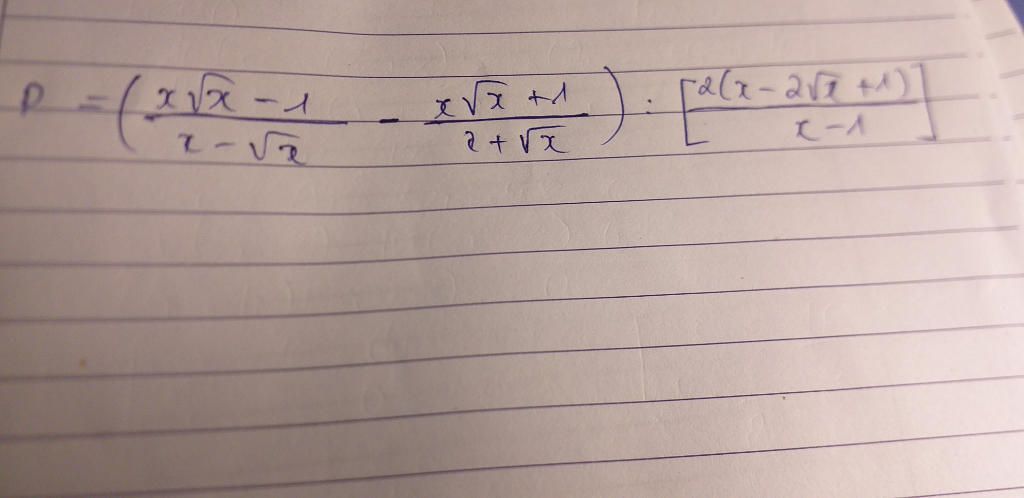 P = ( (x√x - 1)/(x - √x) - (x√x + 1)/(2 + √x) ) : [ 2(x - 2√x + 1)/(x - 1) ]